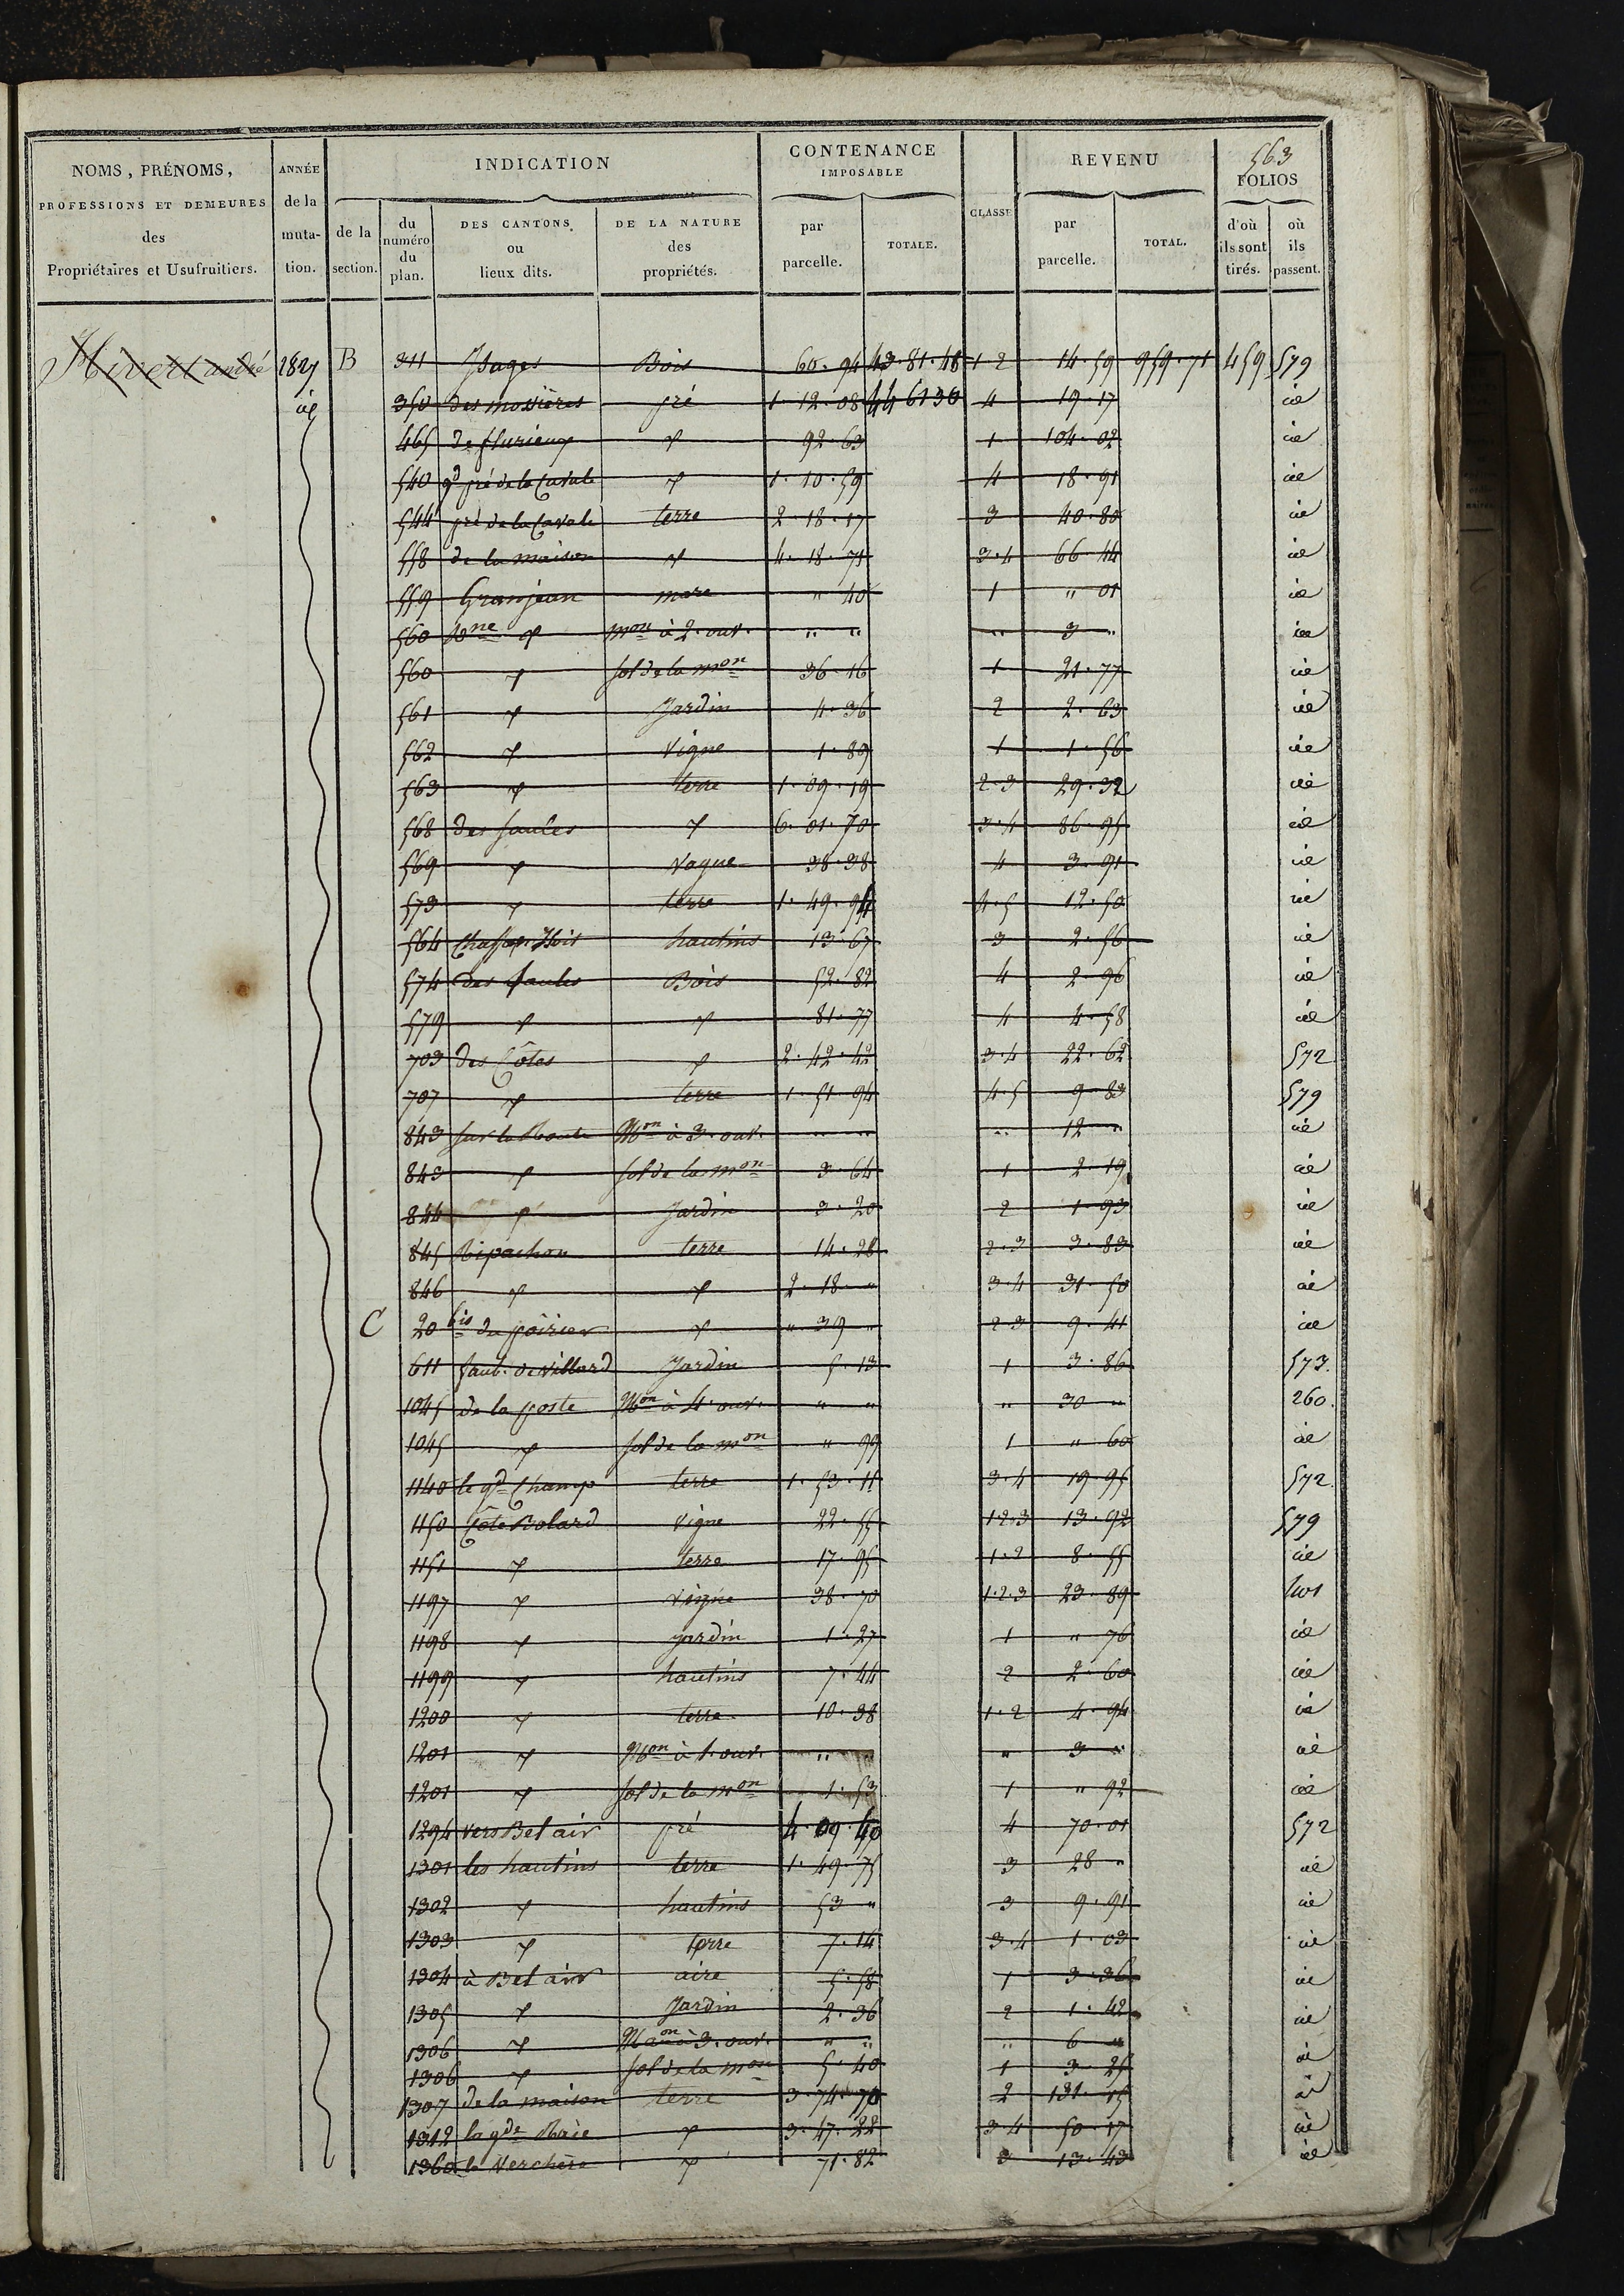 563
NOMS, PRÉNOMS, PROFESSIONS ET DEMEURES des Propriétaires et Usufruitiers.
ANNÉE de la muta- tion.
INDICATION
de la section.
du numéro du plan.
DES CANTONS ou lieux dits.
DE LA NATURE des propriétés.
CONTENANCE IMPOSABLE
par parcelle.
TOTALE.
CLASSE
REVENU
par parcelle.
TOTAL.
FOLIOS
d'où ils sont tirés.
où ils passent.
Hivert andré 1827 B 311 Bois 60.94 43.81.48 1 2 14.59 959.71 459 579
id 350 des mossières pré 1 12.08 44 6130 4 19.17 id
465 de flurieux d 92.63 1 104.02 id
540 gd pré de la Cavale d 1.10.59 4 18.91 id
544 pré de la Cavale terre 2.18.17 3 40.80 id
558 de la maison d 4.18.71 3.4 66 44 id
559 Granjean mare " 40 1 " 01 id
560 d mon à 2. ouv. " " " 3 " id
560 d sol de la mon 36.16 1 21.77 id
561 d Jardin 4.36 2 2.63 id
562 d vigne 1.89 1 1.56 id
563 d terre 1.09.19 2.3 29.32 id
568 des saules d 6.01.70 3.4 86.95 id
569 d vague 38.38 4 3.91 id
573 d terre 1.49.94 4.5 12.50 id
564 hautins 13.67 3 2.56 id
574 des saules Bois 52.82 4 2.96 id
579 d d 81.77 4 4.58 id
703 des Côtes d 2.42.42 3.4 22.62 572
707 d terre 1.51.94 4.5 9.83 579
843 sur la Route Mon à 3. ouv. " " " 12 " id
843 d sol de la mon 3.64 1 2.19 id
844 d Jardin 3.20 2 1.93 id
845 Ripachon terre 14.28 2.3 3.83 id
846 d d 2.18." 3.4 31.50 id
C 20 bis du poirier d " 39 " 2 3 9.41 id
611 faub. de villard Jardin 5.13 1 3.86 573.
1045 de la poste Mon à 4. ouv. " " " 30 " 260.
1045 d sol de la mon " 99 1 " 60 id
1140 le gd Champ terre 1.53.11 3.4 19.95 572.
1150 Côte Bolard vigne 22.55 1.2.3 13.92 579
1151 d terre 17.95 1.2 8.55 id
1197 d vigne 38.70 1.2.3 23.89
1198 d jardin 1.27 1 " 76 id
1199 d hautins 7.44 2 2.60 id
1200 d terre 10.38 1.2 4.94 id
1201 d Mon à 1. ouv. " " " 3 " id
1201 d sol de la mon 1.53 1 " 92 id
1294 vers Bel air pré 4.09.40 4 70.01 572
1301 les hautins terre 1.49.75 3 28 " id
1302 d hautins 53 " 3 9.91 id
1303 d terre 7.14 3.4 1.03 id
1304 à Bel air aire 5.58 1 3.36 id
1305 d Jardin 2.36 2 1.42 id
1306 d Mon à 3. ouv. " " " 6 " id
1306 d sol de la mon 5.40 1 3 25 id
1307 de la maison terre 3.74.70 2 131.15 id
1312 la gde Raie d 3.47.28 3 4 50.17 id
1360 la Verchère d 71.82 3 13.43 id